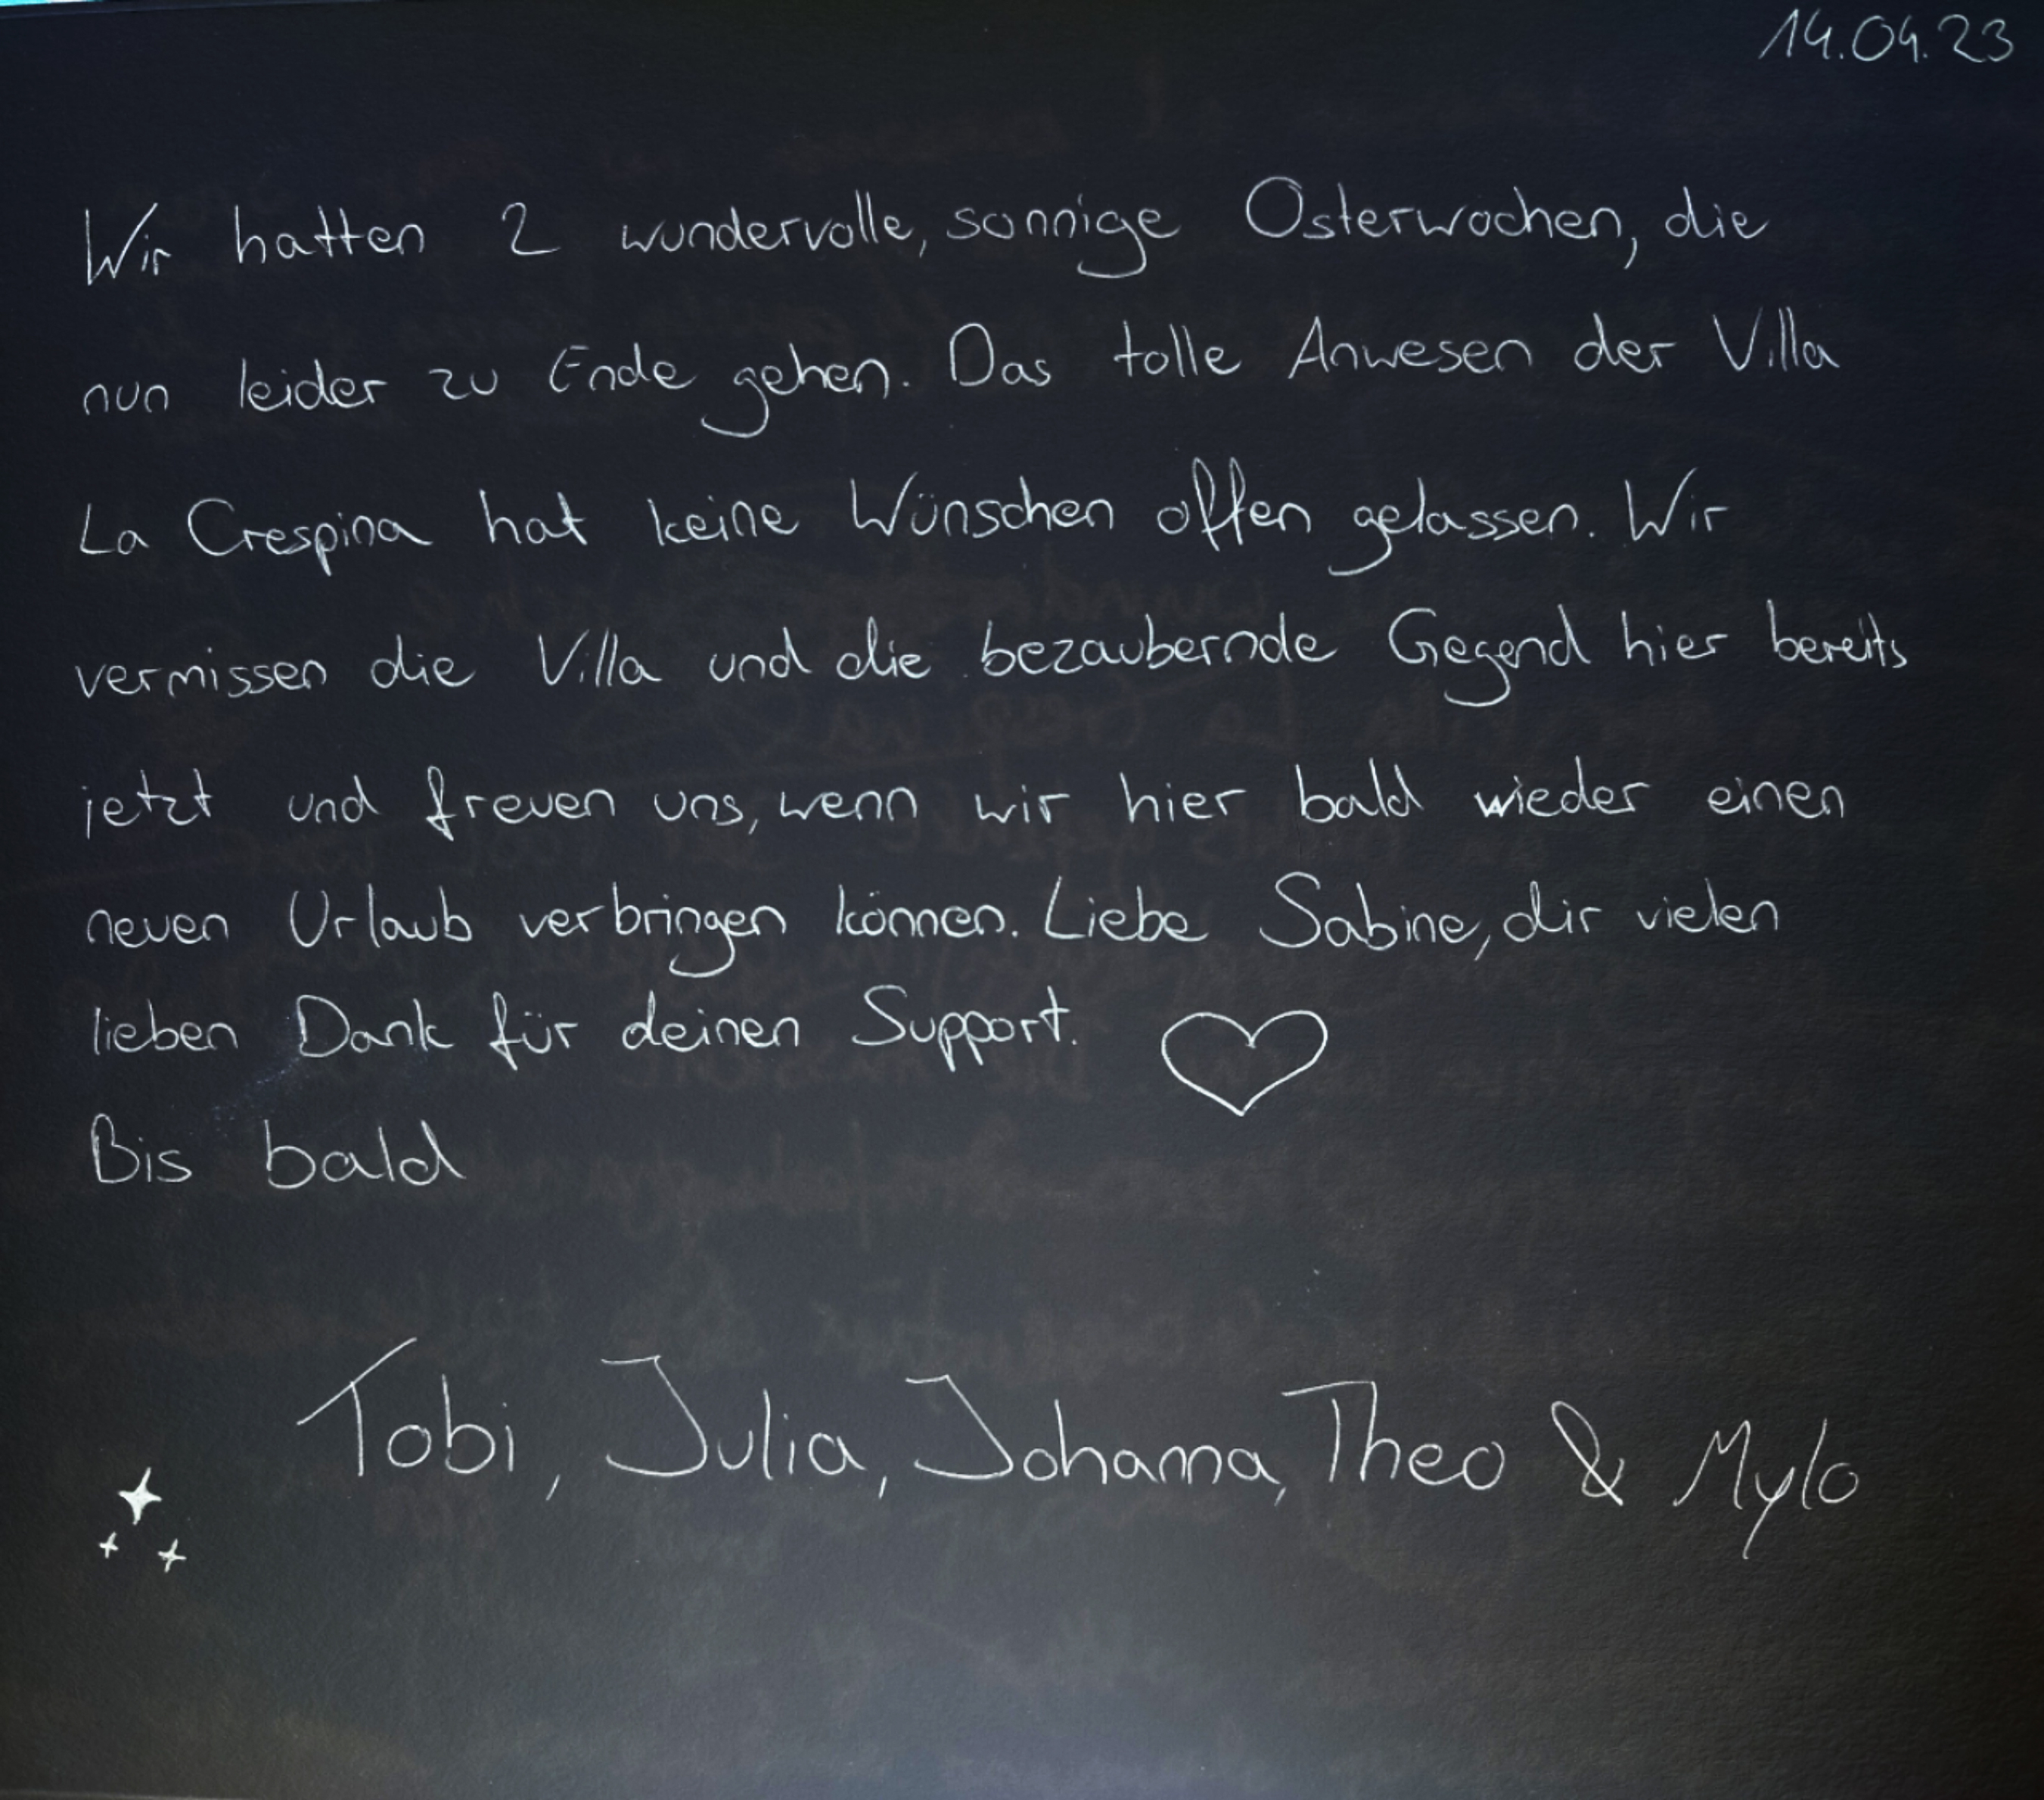 14.04.23
Wir hatten 2 wundervolle, sonnige Osterwochen, die
nun leider zu Ende gehen. Das tolle Anwesen der Villa
La Crespina hat keine Wünschen offen gelassen. Wir
vermissen die Villa und die bezaubernde Gegend hier bereits
jetzt und freuen uns, wenn wir hier bald wieder einen
neuen Urlaub verbringen können. Liebe Sabine, dir vielen
lieben Dank für deinen Support.
Bis bald
Tobi, Julia, Johanna, Theo & Mylo